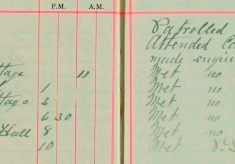 P.M. A.M.
Patrolled
Attended
made enquir
tage 11 Met no
1 Met no
tage 3 Met no
6 30 Met no
Hall 8 Met no
10 Met